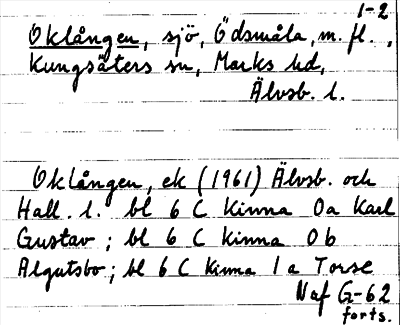 1-2
Oklången, sjö, Ödsmåla, m. fl.,
Kungsäters sn, Marks hd,
Älvsb. l.
Oklången, ek (1961) Älvsb. och
Hall. l. bl 6 C Kinna 0a Karl
Gustav; bl 6 C Kinna 0b
Algutsbo; bl 6 C Kinna 1a Torse
Naf G-62
forts.